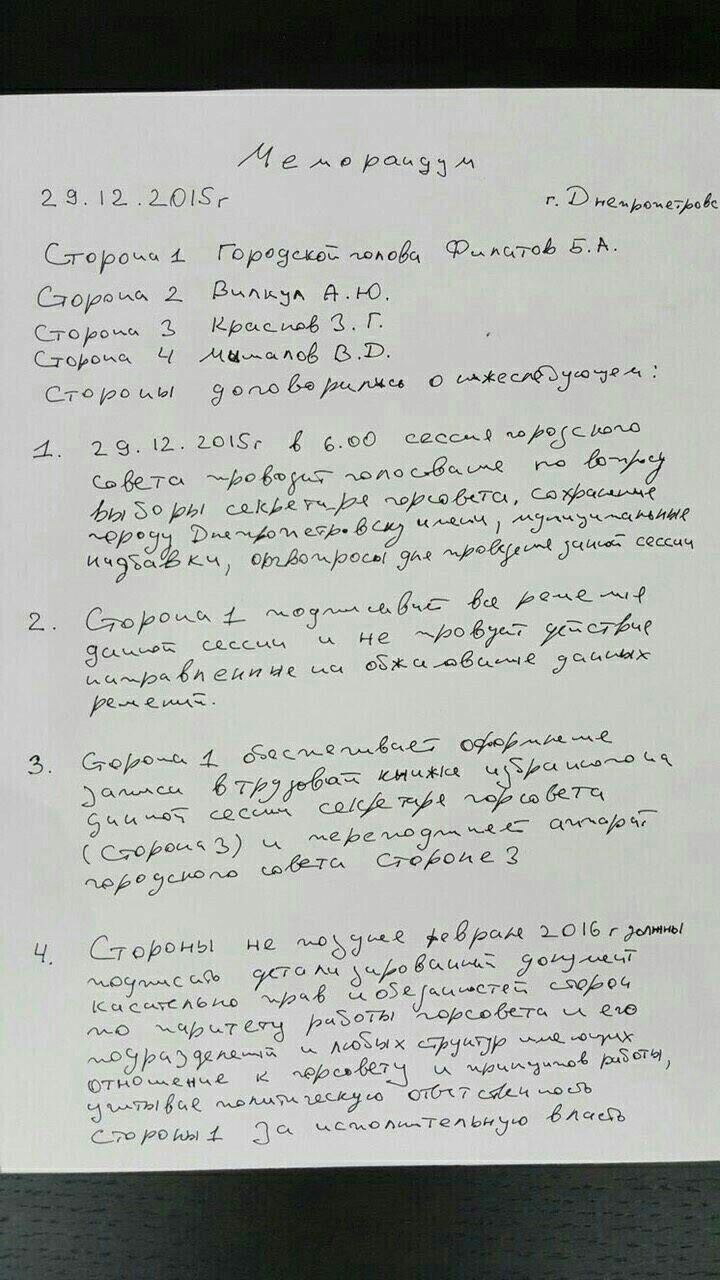 Меморандум
29.12.2015г г. Днепропетровс
Сторона 1 Городской голова Филатов Б.А.
Сторона 2 Вилкул А.Ю.
Сторона 3 Краснов З.Г.
Сторона 4 Мишалов В.Д.
Стороны договорились о нижеследующем:
1. 29.12.2015г в 6.00 сессия городского
совета проводит голосование по вопросу
выборы секретаря горсовета, сохранение
городу Днепропетровску имени, муниципальные
надбавки, оргвопросы для проведения данной сессии
2. Сторона 1 подписывает все решения
данной сессии и не проводит действия
направленные на обжалование данных
решений.
3. Сторона 1 обеспечивает оформление
записи в трудовой книжке избранного на
данной сессии секретаря горсовета
(Сторона 3) и переподчиняет аппарат
городского совета Стороне 3
4. Стороны не позднее февраля 2016г должны
подписать детализированный документ
касательно прав и обязанностей сторон
по паритету работы горсовета и его
подразделений и любых структур имеющих
отношение к горсовету и принципов работы,
учитывая политическую ответственность
Стороны 1 за исполнительную власть